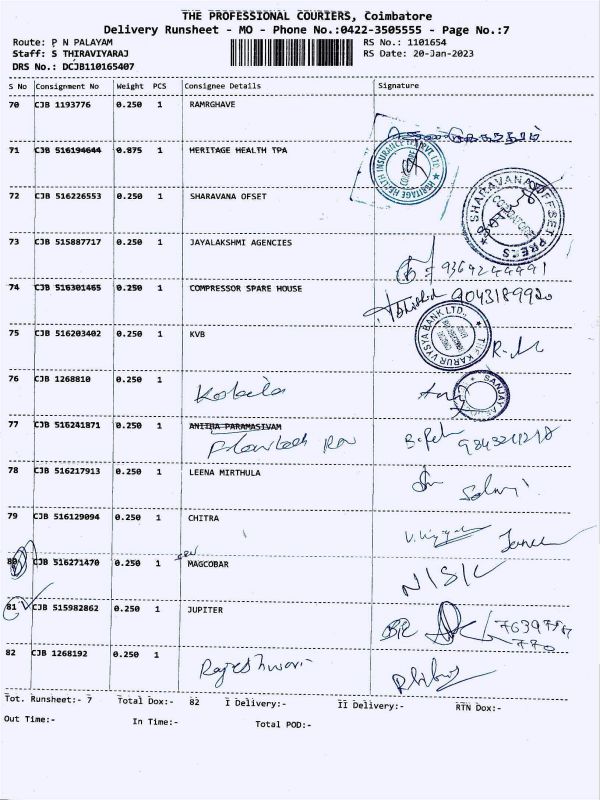 THE PROFESSIONAL COURIERS, Coimbatore
Delivery Runsheet - MO - Phone No.:0422-3505555 - Page No.:7
Route: P N PALAYAM RS No.: 1101654
Staff: S THIRAVIYARAJ RS Date: 20-Jan-2023
DRS No.: DCJB110165407
S No Consignment No Weight PCS Consignee Details Signature
70 CJB 1193776 0.250 1 RAMRGHAVE
71 CJB 516194644 0.875 1 HERITAGE HEALTH TPA
72 CJB 516226553 0.250 1 SHARAVANA OFSET
SHARAVANA OFFSET PRESS
73 CJB 515887717 0.250 1 JAYALAKSHMI AGENCIES
9364244491
74 CJB 516301465 0.250 1 COMPRESSOR SPARE HOUSE 9043189920
75 CJB 516203402 0.250 1 KVB
THE KARUR VYSYA BANK LTD.,
76 CJB 1268810 0.250 1
Kokila
SANJAY
77 CJB 516241871 0.250 1 ANITHA PARAMASIVAM
78 CJB 516217913 0.250 1 LEENA MIRTHULA
Selvi
79 CJB 516129094 0.250 1 CHITRA
80 CJB 516271470 0.250 1 MAGCOBAR
81 CJB 515982862 0.250 1 JUPITER
82 CJB 1268192 0.250 1
Rajeshwari
Tot. Runsheet:- 7 Total Dox:- 82 I Delivery:- II Delivery:- RTN Dox:-
Out Time:- In Time:- Total POD:-